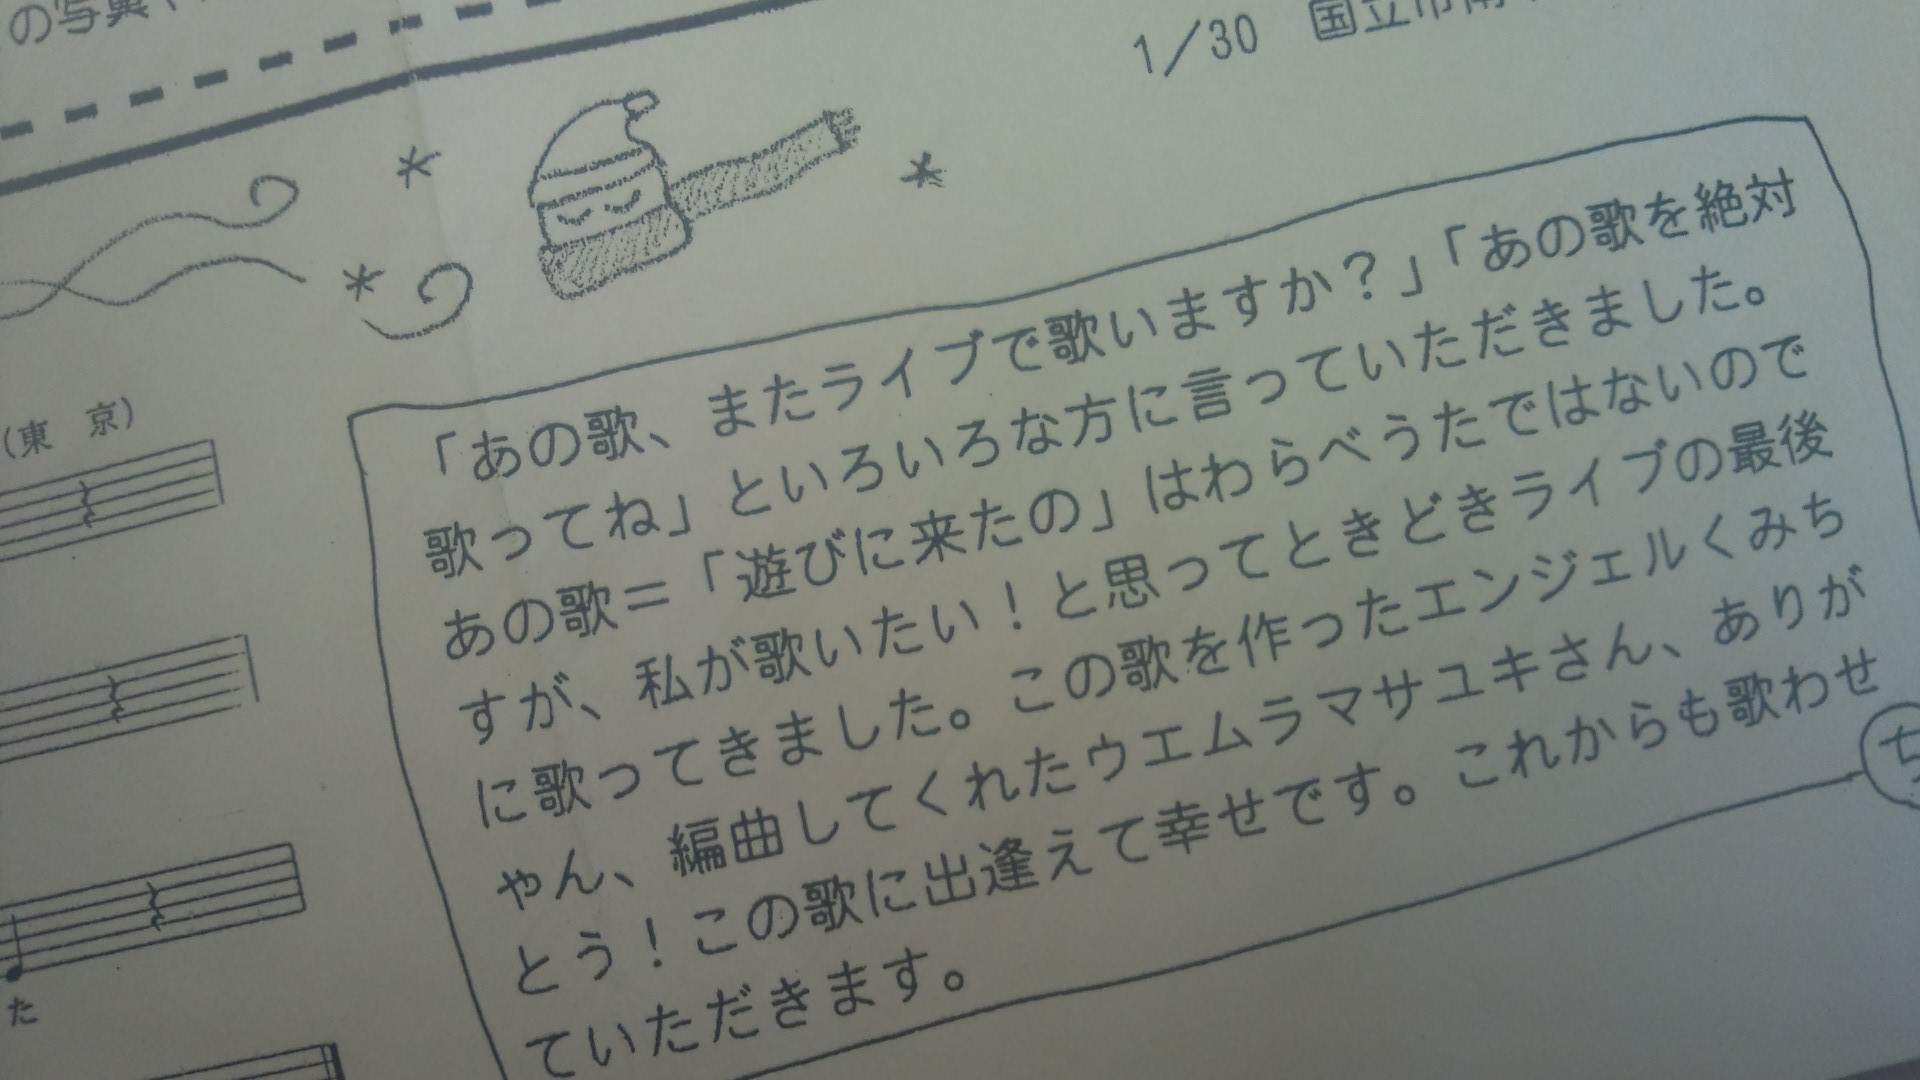 の写真
1/30 国立市
(東 京)
「あの歌、またライブで歌いますか？」「あの歌を絶対
歌ってね」といろいろな方に言っていただきました。
あの歌＝「遊びに来たの」はわらべうたではないので
すが、私が歌いたい！と思ってときどきライブの最後
に歌ってきました。この歌を作ったエンジェルくみち
ゃん、編曲してくれたウエムラマサユキさん、ありが
とう！この歌に出逢えて幸せです。これからも歌わせ
ていただきます。
ち
た